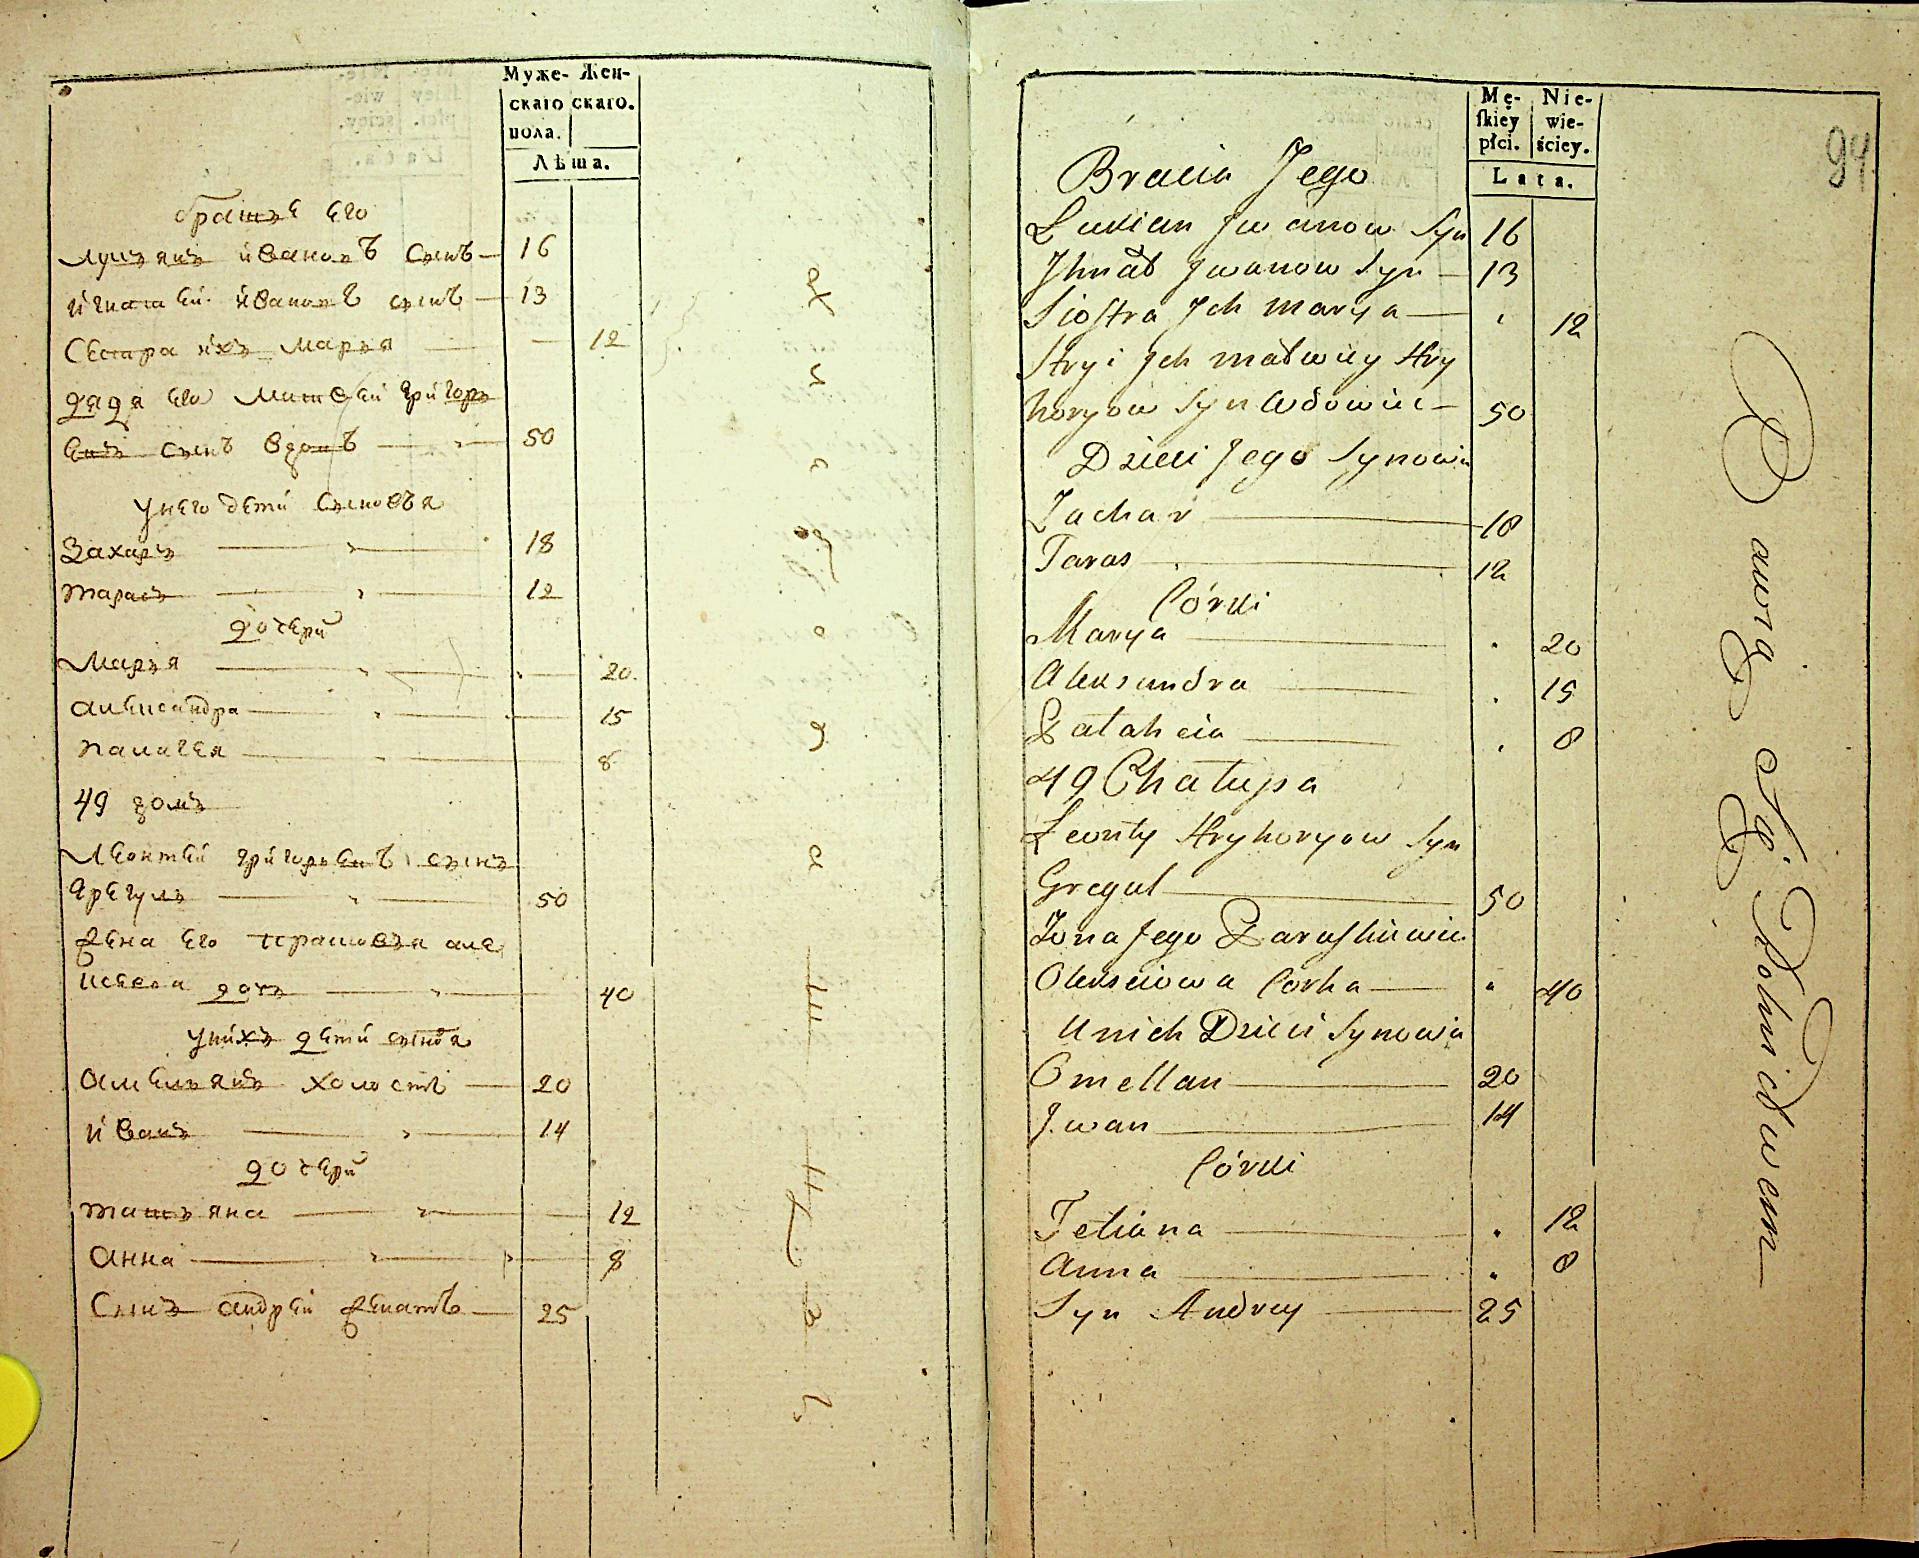 Муже-
скаго
пола.
Жен-
скаго.
Лѣта.
братья его
лукьянъ ивановъ сынъ — 16
игнатей ивановъ сынъ — 13
Сестра ихъ марья — 12
дядя его матвей григорь
евъ сынъ вдовъ — 50
у него дети сыновья
Захаръ — 18
тарасъ — 12
дочери
Марья — 20
александра — 15
палагея — 8
49 домъ
Леонтей григорьевъ сынъ
грегуль — 50
жена его парасковья але
ксеева дочь — 40
у нихъ дети сыновя
амельянъ холостъ — 20
иванъ — 14
дочери
татьяна — 12
анна — 8
Сынъ андрей женатъ — 25
94
Mę-
ſkiey
płci.
Nie-
wie-
ściey.
Lata.
Bracia Jego
Lukian Jwanow Syn 16
Jhnat Jwanow Syn — 13
Siostra Jch marya — 12
Stryi Jch matwiey Hry
horyow Syn Wdowiec — 50
Dzieci Jego Synowie
Zachar — 18
Taras — 12
Córki
Marya — 20
Aleksandra — 15
Pałahcia — 8
49 Chałupa
Leonty Hryhoryow Syn
Gregul — 50
Żona Jego Paraskiewia
Olexciowa Corka — 40
U nich Dzieci Synowie
Omellan — 20
Jwan — 14
Córki
Tetiana — 12
Anna — 8
Syn Andrey — 25
Bawią Się Rolnictwem